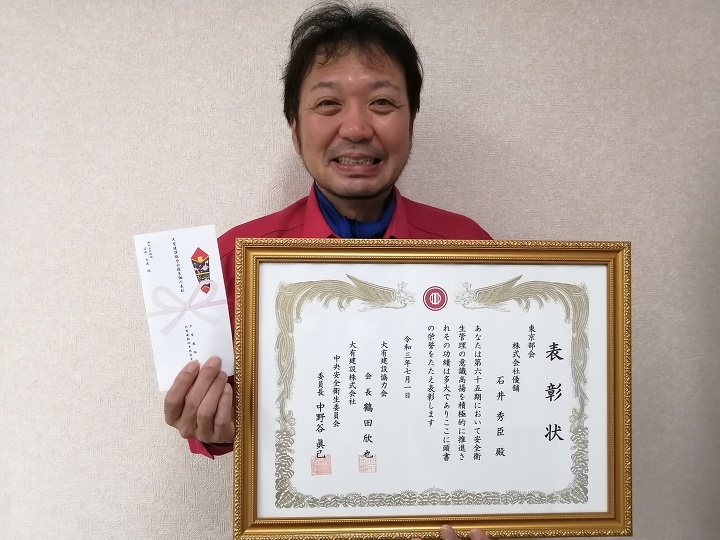 表彰状
東京部会
株式会社優舗
石井秀臣殿
あなたは第六十五期において安全衛
生管理の意識高揚を積極的に推進さ
れその功績は多大でありここに頭書
の栄誉をたたえ表彰します
令和三年七月一日
大有建設協力会
会長鶴田欣也
大有建設株式会社
中央安全衛生委員会
委員長中野谷眞己